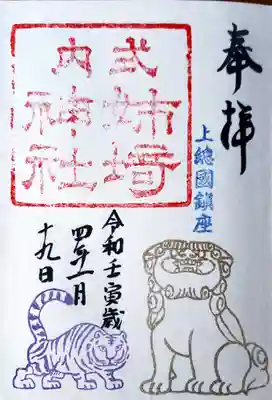 奉拝
上總國鎮座
式内
姉埼
神社
令和壬寅歳
四年一月
十九日